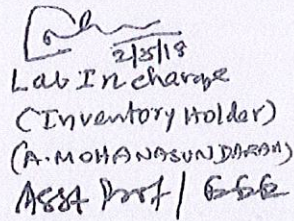 2/5/18
Lab Incharge
(Inventory Holder)
(A. MOHANASUNDARAM)
Asst Prof / EEE